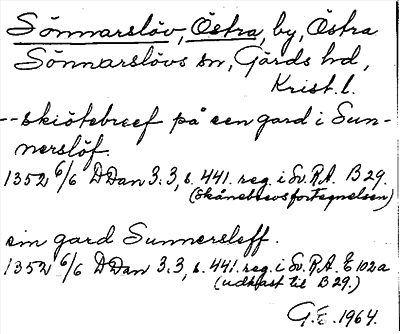 Sönnarslöv, Östra, by, Östra
Sönnarslövs sn, Gärds hd,
Krist. l.
--skiötebreef på een gard i Sun-
nerslöf.
1352 6/6 DDan 3:3, s. 441. reg. i Sv. R.A. B 29.
(Skånebrevsfortegnelsen)
em gard Sunnersleff.
1352 6/6 DDan 3:3, s. 441. reg. i Sv. R.A. E 102a
(udkast til B 29.)
G.E. 1964.